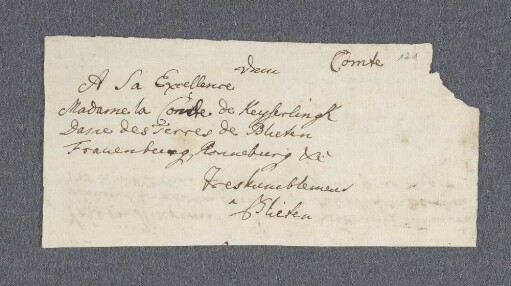 Comte 121
A Sa Excellence
Madame la Comte de Keyserlingk
Dame des Terres de Blieten
Frauenburg, Ronneburg &c
Treshumblement
a Blieten